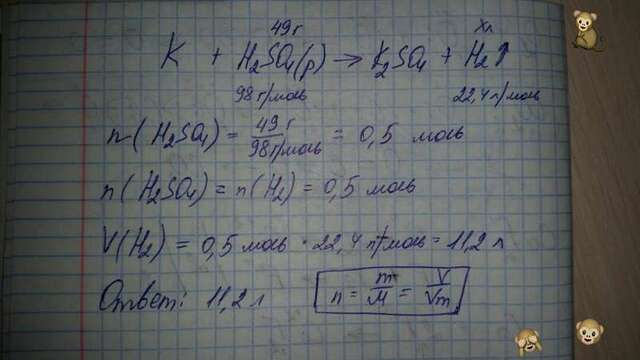 49 г
Xл
K + H₂SO₄(р) → K₂SO₄ + H₂↑
98 г/моль
22,4 л/моль
n(H₂SO₄) = 49 г / 98 г/моль = 0,5 моль
n(H₂SO₄) = n(H₂) = 0,5 моль
V(H₂) = 0,5 моль · 22,4 л/моль = 11,2 л
Ответ: 11,2 л
n = m/M = V/Vm